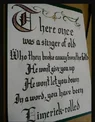 There once
was a singer of old
Who then broke away from the fold
He wont give you up
He wont let you down
In a word, you have been
Limerick-rolled